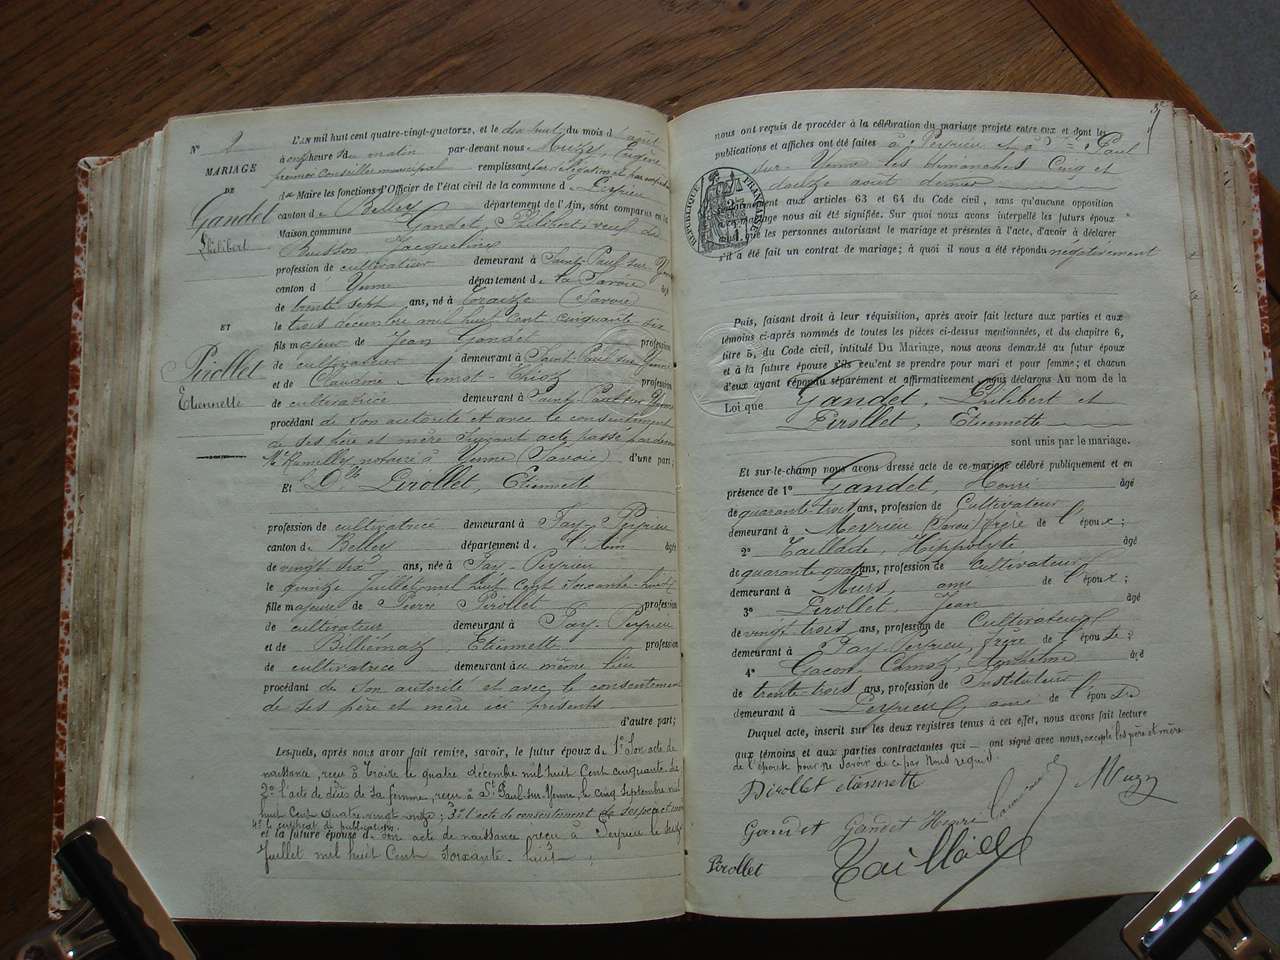 N° 2
MARIAGE
DE
Gandet
Philibert
ET
Pirollet
Etiennette
L'AN mil huit cent quatre-vingt-quatorze, et le dix huit du mois d'août
à onze heures du matin par-devant nous Muzy, Eugène
premier Conseiller municipal remplissant par délégation
de Maire les fonctions d'Officier de l'état civil de la commune de Peyrieu
canton de Belley département de l'Ain, sont comparus en la
Maison commune Gandet, Philibert, veuf de
Buisson Jacqueline
profession de cultivateur demeurant à Saint-Paul-sur-Yenne
canton d' Yenne département de la Savoie âgé
de trente sept ans, né à Traize (Savoie)
le trois décembre mil huit cent cinquante six
fils majeur de Jean Gandet profession
de cultivateur demeurant à Saint-Paul-sur-Yenne
et de Claudine profession
de cultivatrice demeurant à Saint-Paul-sur-Yenne
procédant de son autorité et avec le consentement
de ses père et mère suivant acte passé par devant
Me Rumilly notaire à Yenne (Savoie) d'une part;
Et Dlle Pirollet, Etiennette
profession de cultivatrice demeurant à Fay-Peyrieu
canton de Belley département de l'Ain âgée
de vingt six ans, née à Fay-Peyrieu
le quinze Juillet mil huit cent soixante-huit
fille majeure de Pierre Pirollet profession
de cultivateur demeurant à Fay-Peyrieu
et de Billiémaz, Etiennette profession
de cultivatrice demeurant au même lieu
procédant de son autorité et avec le consentement
de ses père et mère ici présents
d'autre part;
Lesquels, après nous avoir fait remise, savoir, le futur époux de 1° Son acte de
naissance, reçu à Traize le quatre décembre mil huit Cent cinquante six
2° l'acte de décès de sa femme, reçu à St Paul-sur-Yenne, le cinq Septembre mil
huit Cent quatre vingt onze; 3° l'acte de consentement de ses père et mère
4° le certificat de publication
et la future épouse de son acte de naissance reçu à Peyrieu le seize
Juillet mil huit Cent soixante-huit;
nous ont requis de procéder à la célébration du mariage projeté entre eux et dont les
publications et affiches ont été faites à Peyrieu et à St Paul
sur Yenne les dimanches Cinq et
douze août dernier
RÉPUBLIQUE FRANÇAISE
conformément aux articles 63 et 64 du Code civil, sans qu'aucune opposition
au dit mariage nous ait été signifiée. Sur quoi nous avons interpellé les futurs époux
ainsi que les personnes autorisant le mariage et présentes à l'acte, d'avoir à déclarer
s'il a été fait un contrat de mariage; à quoi il nous a été répondu négativement
Puis, faisant droit à leur réquisition, après avoir fait lecture aux parties et aux
témoins ci-après nommés de toutes les pièces ci-dessus mentionnées, et du chapitre 6,
titre 5, du Code civil, intitulé Du Mariage, nous avons demandé au futur époux
et à la future épouse s'ils veulent se prendre pour mari et pour femme; et chacun
d'eux ayant répondu séparément et affirmativement nous déclarons Au nom de la
Loi que Gandet, Philibert et
Pirollet, Etiennette
sont unis par le mariage.
Et sur-le-champ nous avons dressé acte de ce mariage célébré publiquement et en
présence de 1° Gandet, Henri âgé
de quarante trois ans, profession de Cultivateur
demeurant à Meyrieu (Savoie) frère de l'époux;
2° Taillade, Hippolyte âgé
de quarante quatre ans, profession de Cultivateur
demeurant à Murs, ami de l'époux;
3° Pirollet, Jean âgé
de vingt-trois ans, profession de Cultivateur
demeurant à Fay-Peyrieu, frère de l'épouse;
4° Gacon Camoz, Anthelme âgé
de trente-trois ans, profession de Instituteur
demeurant à Peyrieu, ami de l'épouse
Duquel acte, inscrit sur les deux registres tenus à cet effet, nous avons fait lecture
aux témoins et aux parties contractantes qui ont signé avec nous, excepté les père et mère
de l'épouse pour ne savoir de ce par Nous requis.
Pirollet etiennette
Muzy
Gandet Gandet Henri
Pirollet Taillade